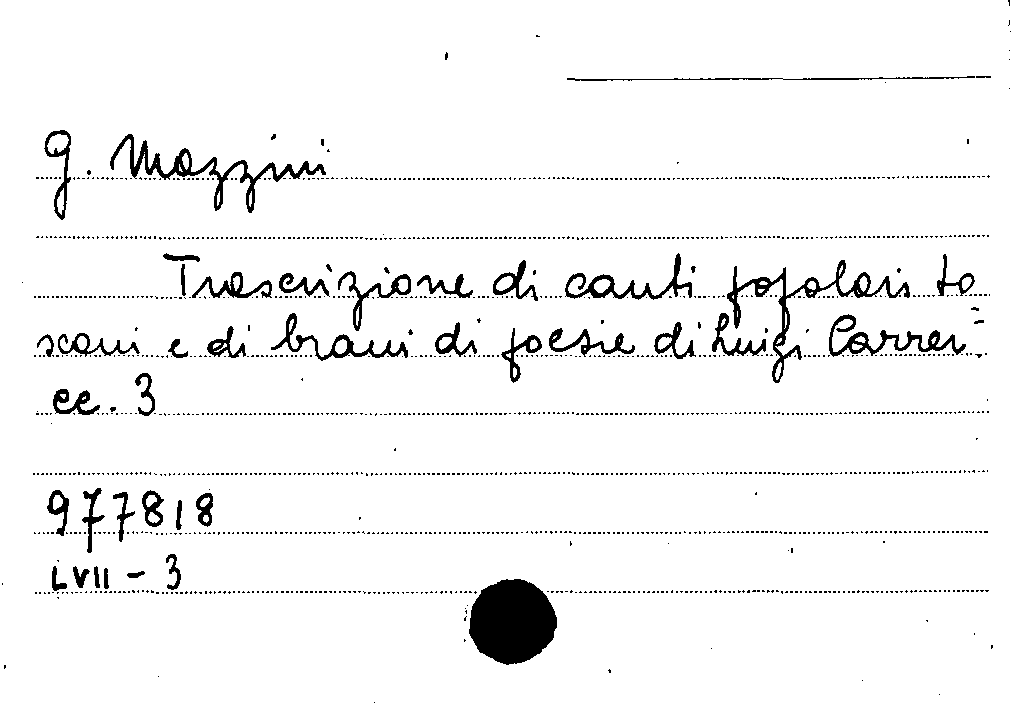 G. Mazzini
Trascrizione di canti popolari to=
scani e di brani di poesie di Luigi Carrer.
cc. 3
977818
LVII - 3